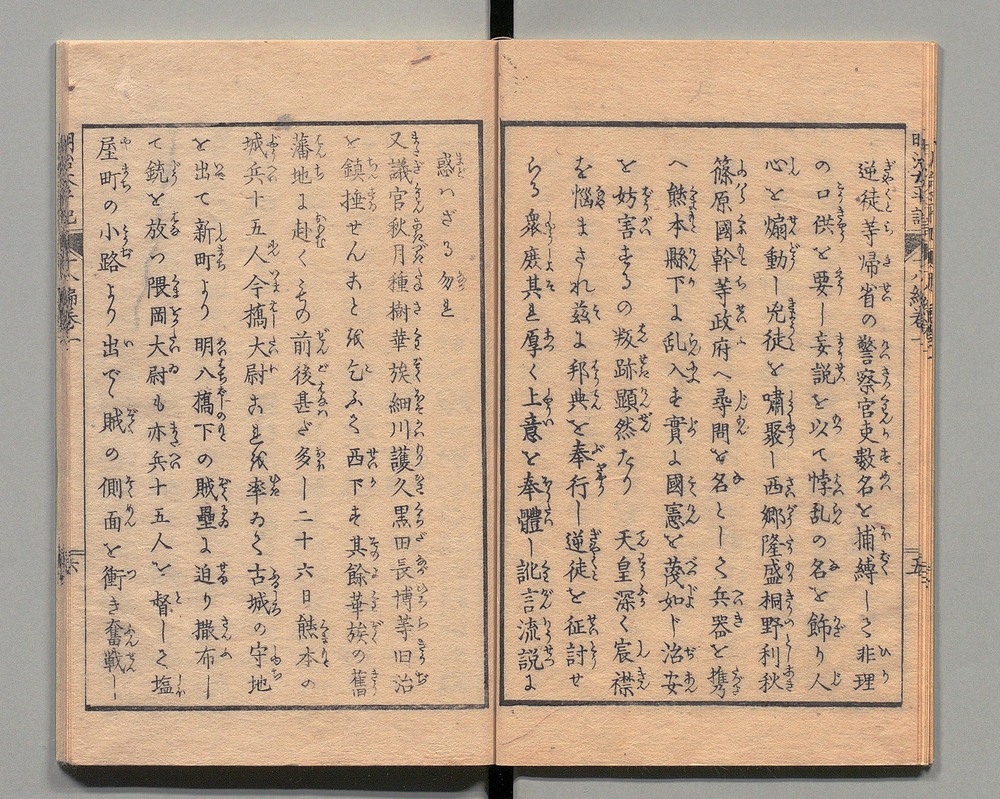 逆徒等帰省の警察官吏数名を捕縛して非理
の口供を要し妄説を以て悖乱の名を飾り人
心を煽動し兇徒を嘯聚し西郷隆盛桐野利秋
篠原國幹等政府へ尋問を名として兵器を携
へ熊本縣下に乱入す實に國憲を蔑如し治安
を妨害するの叛跡顕然たり 天皇深く宸襟
を悩まされ茲に邦典を奉行し逆徒を征討せ
らる衆庶其れ厚く上意を奉體し訛言流説に
惑ハざる勿れ
又議官秋月種樹華族細川護久黒田長博等旧治
を鎮捶せんことを乞ふて西下す其餘華族の舊
藩地に赴くもの前後甚だ多し二十六日熊本の
城兵十五人今㩮大尉これを率ゐて古城の守地
を出て新町より明八橋下の賊壘に迫り撒布し
て銃を放つ隈岡大尉も亦兵十五人を督して塩
屋町の小路より出でて賊の側面を衝き奮戰し
明治太平記
十八編巻一
五
六